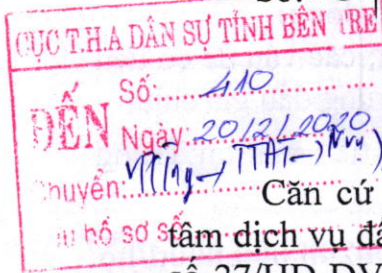 CỤC T.H.A DÂN SỰ TỈNH BẾN TRE
ĐẾN
Số: 410
Ngày: 20/2/2020
Chuyển:
Lưu hồ sơ số
Căn cứ
tâm dịch vụ đấ
số 27/HĐ-DV